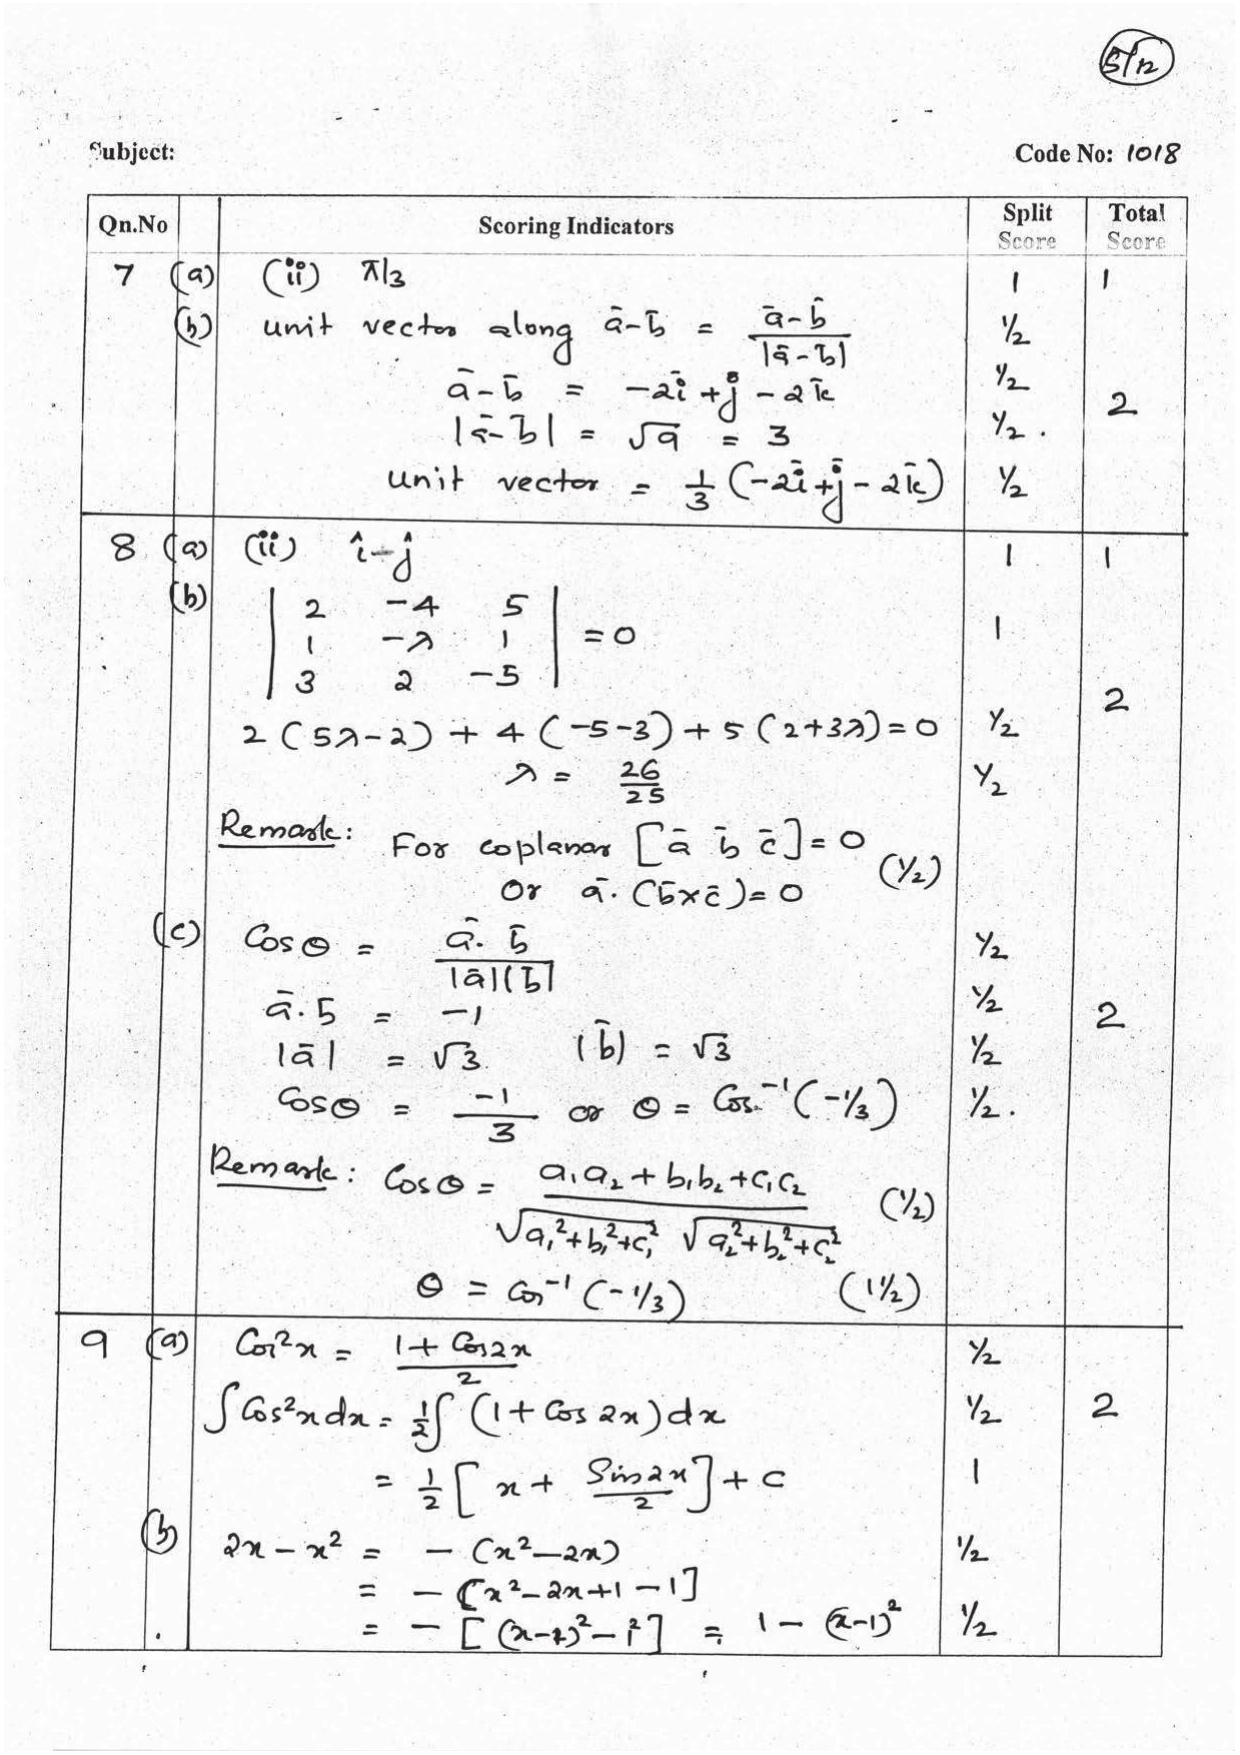 5/12
Subject: Code No: 1018
Qn.No Scoring Indicators Split Score Total Score
7 (a) (ii) π/3 1 1
(b) unit vector along a̅-b̅ = a̅-b̅ / |a̅-b̅| ½
a̅-b̅ = -2i̅+j̅-2k̅ ½ 2
|a̅-b̅| = √9 = 3 ½.
unit vector = 1/3 (-2i̅+j̅-2k̅) ½
8 (a) (ii) î-ĵ 1 1
(b) | 2 -4 5 |
| 1 -λ 1 | = 0 1
| 3 2 -5 |
2
2(5λ-2) + 4(-5-3) + 5(2+3λ) = 0 ½
λ = 26/25 ½
Remark: For coplanar [a̅ b̅ c̅] = 0 (½)
Or a̅.(b̅×c̅) = 0
(c) Cosθ = a̅.b̅ / |a̅||b̅| ½
a̅.b̅ = -1 ½ 2
|a̅| = √3 |b̅| = √3 ½
Cosθ = -1/3 or θ = Cos⁻¹(-1/3) ½.
Remark: Cosθ = a₁a₂+b₁b₂+c₁c₂ / √a₁²+b₁²+c₁² √a₂²+b₂²+c₂² (½)
θ = Cos⁻¹(-1/3) (1½)
9 (a) Cos²x = 1+Cos2x / 2 ½
∫Cos²x dx = ½∫(1+Cos 2x)dx ½ 2
= ½[x + Sin2x/2] + c 1
(b) 2x-x² = -(x²-2x) ½
= -[x²-2x+1-1]
= -[(x-1)²-1²] = 1-(x-1)² ½